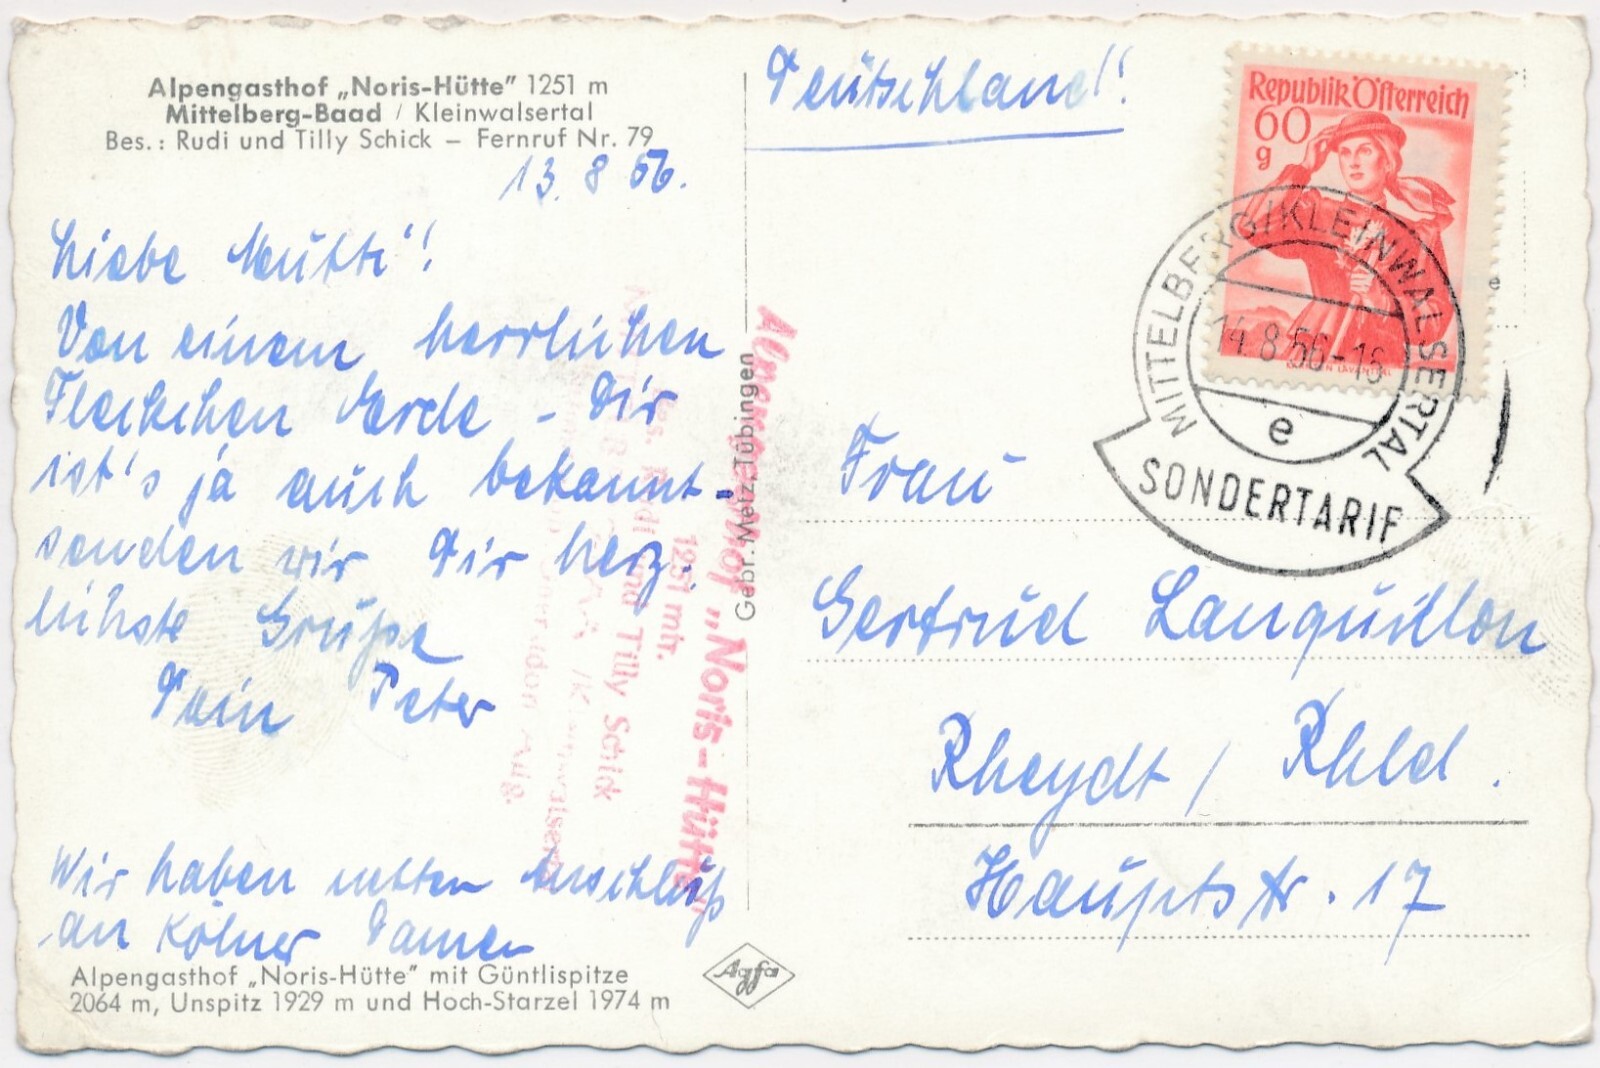 Alpengasthof „Noris-Hütte" 1251 m
Mittelberg-Baad / Kleinwalsertal
Bes.: Rudi und Tilly Schick – Fernruf Nr. 79
13. 8 56.
Liebe Mutti!
Von einem herrlichen
Fleckchen Erde – Dir
ist's ja auch bekannt -
senden wir Dir herz-
lichste Grüße
Dein Peter
Wir haben netten Anschluß
an Kölner Damen
Alpengasthof „Noris-Hütte" mit Güntlispitze
2064 m, Unspitz 1929 m und Hoch-Starzel 1974 m
Gebr. Metz, Tübingen
Alpengasthof „Noris-Hütte"
1251 mtr.
Bes. Rudi und Tilly Schick
Agfa
Deutschland!
Republik Österreich
60
g
MITTELBERG/KLEINWALSERTAL
14.8.56-16
e
SONDERTARIF
Frau
Gertrud Lanquillon
Rheydt / Rhld.
Hauptstr. 17